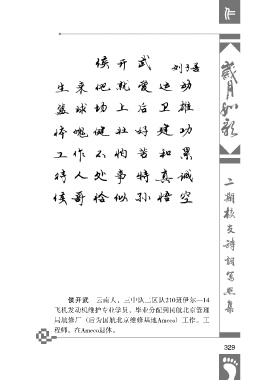 作
侯开武
刘多善
生来他就爱运动
篮球场上后卫雄
体魄健壮好建功
工作不怕苦和累
待人处事特真诚
侯哥恰似孙悟空
侯开武 云南人，三中队二区队210班伊尔—14
飞机发动机维护专业学员，毕业分配到民航北京管理
局航修厂（后为民航北京维修基地Ameco）工作。工
程师。在Ameco退休。
岁月如歌
二期校友诗词写照集
329